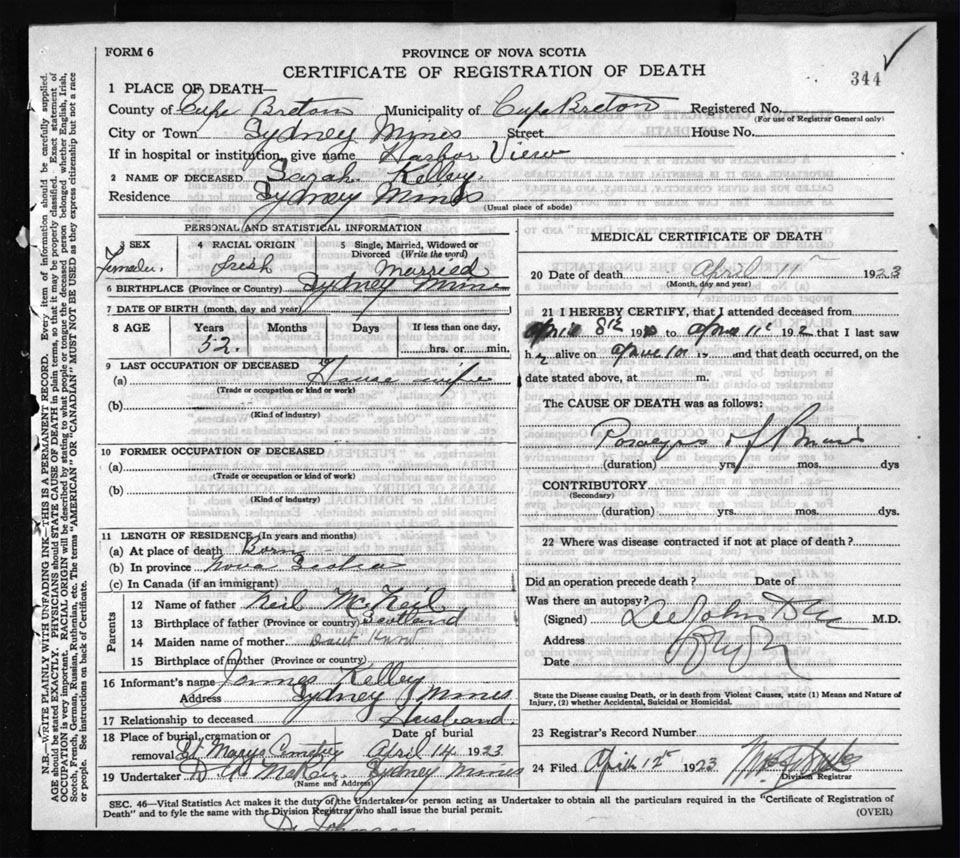 FORM 6
PROVINCE OF NOVA SCOTIA
CERTIFICATE OF REGISTRATION OF DEATH
344
1 PLACE OF DEATH—
County of Cape Breton Municipality of Cape Breton Registered No.
(For use of Registrar General only)
City or Town Sydney Mines Street House No.
If in hospital or institution, give name Harbor View
2 NAME OF DECEASED Sarah Kelley.
Residence Sydney Mines
(Usual place of abode)
PERSONAL AND STATISTICAL INFORMATION
3 SEX 4 RACIAL ORIGIN 5 Single, Married, Widowed or Divorced (Write the word)
Female. Irish Married
6 BIRTHPLACE (Province or Country) Sydney Mines
7 DATE OF BIRTH (month, day and year)
8 AGE Years Months Days If less than one day,
52. hrs. or min.
9 LAST OCCUPATION OF DECEASED
(a) House wife
(Trade or occupation or kind or work)
(b)
(Kind of industry)
10 FORMER OCCUPATION OF DECEASED
(a)
(Trade or occupation or kind or work)
(b)
(Kind of industry)
11 LENGTH OF RESIDENCE (In years and months)
(a) At place of death Born
(b) In province Nova Scotia
(c) In Canada (if an immigrant)
Parents
12 Name of father Neil McNeil
13 Birthplace of father (Province or country) Scotland
14 Maiden name of mother
15 Birthplace of mother (Province or country)
16 Informant's name James Kelley
Address Sydney Mines.
17 Relationship to deceased Husband.
18 Place of burial, cremation or Date of burial
removal St. Marys Cemetery April 14 1923
19 Undertaker Sydney Mines
(Name and Address)
MEDICAL CERTIFICATE OF DEATH
20 Date of death April 11 1923
(Month, day and year)
21 I HEREBY CERTIFY, that I attended deceased from
April 8th 19 to April 11 192 that I last saw
h alive on April 10 and that death occurred, on the
date stated above, at m.
The CAUSE OF DEATH was as follows:
of
(duration) yrs. mos. dys
CONTRIBUTORY
(Secondary)
(duration) yrs. mos. dys.
22 Where was disease contracted if not at place of death?
Did an operation precede death? Date of
Was there an autopsy?
(Signed) M.D.
Address
Date
State the Disease causing Death, or in death from Violent Causes, state (1) Means and Nature of
Injury, (2) whether Accidental, Suicidal or Homicidal.
23 Registrar's Record Number
24 Filed April 12th 1923
Division Registrar
SEC. 46—Vital Statistics Act makes it the duty of the Undertaker or person acting as Undertaker to obtain all the particulars required in the "Certificate of Registration of
Death" and to fyle the same with the Division Registrar who shall issue the burial permit.
(OVER)
N.B.—WRITE PLAINLY WITH UNFADING INK—THIS IS A PERMANENT RECORD. Every item of information should be carefully supplied.
AGE should be stated EXACTLY. PHYSICIANS should STATE CAUSE OF DEATH in plain terms, so that it may be properly classified. Exact statement of
OCCUPATION is very important. RACIAL ORIGIN will be described by stating to what people or tongue the deceased person belonged whether English, Irish,
Scotch, French, German, Russian, Ruthenian, etc. The terms "AMERICAN" OR "CANADIAN" MUST NOT BE USED as they express citizenship but not a race
or people. See instructions on back of Certificate.